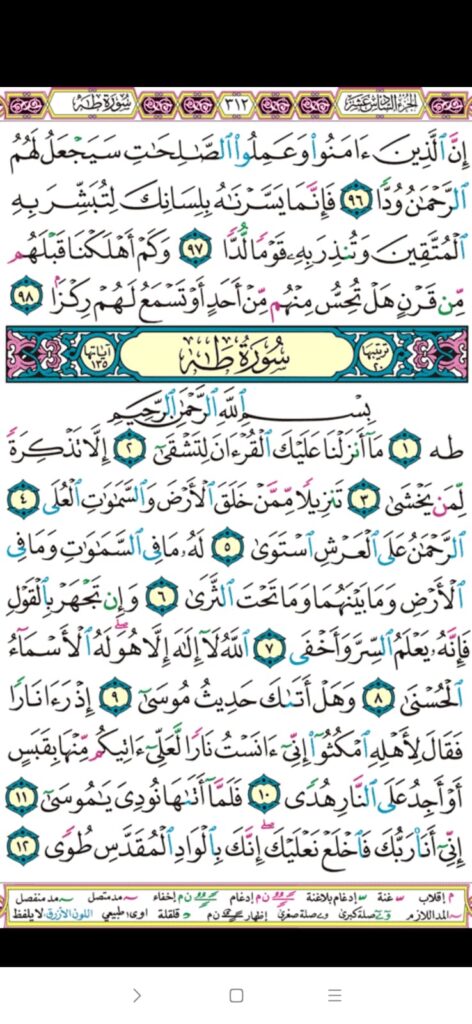 الجزء السادس عشر ٣١٢ سورة طه
إِنَّ ٱلَّذِينَ ءَامَنُوا۟ وَعَمِلُوا۟ ٱلصَّـٰلِحَـٰتِ سَيَجْعَلُ لَهُمُ
ٱلرَّحْمَـٰنُ وُدًّا ٩٦ فَإِنَّمَا يَسَّرْنَـٰهُ بِلِسَانِكَ لِتُبَشِّرَ بِهِ
ٱلْمُتَّقِينَ وَتُنذِرَ بِهِۦ قَوْمًا لُّدًّا ٩٧ وَكَمْ أَهْلَكْنَا قَبْلَهُم
مِّن قَرْنٍ هَلْ تُحِسُّ مِنْهُم مِّنْ أَحَدٍ أَوْ تَسْمَعُ لَهُمْ رِكْزًۢا ٩٨
ترتيبها ٢٠ سورة طه آياتها ١٣٥
بِسْمِ ٱللَّهِ ٱلرَّحْمَـٰنِ ٱلرَّحِيمِ
طه ١ مَآ أَنزَلْنَا عَلَيْكَ ٱلْقُرْءَانَ لِتَشْقَىٰٓ ٢ إِلَّا تَذْكِرَةً
لِّمَن يَخْشَىٰ ٣ تَنزِيلًا مِّمَّنْ خَلَقَ ٱلْأَرْضَ وَٱلسَّمَـٰوَٰتِ ٱلْعُلَى ٤
ٱلرَّحْمَـٰنُ عَلَى ٱلْعَرْشِ ٱسْتَوَىٰ ٥ لَهُۥ مَا فِى ٱلسَّمَـٰوَٰتِ وَمَا فِى
ٱلْأَرْضِ وَمَا بَيْنَهُمَا وَمَا تَحْتَ ٱلثَّرَىٰ ٦ وَإِن تَجْهَرْ بِٱلْقَوْلِ
فَإِنَّهُۥ يَعْلَمُ ٱلسِّرَّ وَأَخْفَى ٧ ٱللَّهُ لَآ إِلَـٰهَ إِلَّا هُوَ ۖ لَهُ ٱلْأَسْمَآءُ
ٱلْحُسْنَىٰ ٨ وَهَلْ أَتَىٰكَ حَدِيثُ مُوسَىٰٓ ٩ إِذْ رَءَا نَارًا
فَقَالَ لِأَهْلِهِ ٱمْكُثُوٓا۟ إِنِّىٓ ءَانَسْتُ نَارًا لَّعَلِّىٓ ءَاتِيكُم مِّنْهَا بِقَبَسٍ
أَوْ أَجِدُ عَلَى ٱلنَّارِ هُدًى ١٠ فَلَمَّآ أَتَىٰهَا نُودِىَ يَـٰمُوسَىٰٓ ١١
إِنِّىٓ أَنَا۠ رَبُّكَ فَٱخْلَعْ نَعْلَيْكَ ۖ إِنَّكَ بِٱلْوَادِ ٱلْمُقَدَّسِ طُوًى ١٢
م إقلاب غنة إدغام بلاغنة ن م إدغام ن م إخفاء مد متصل مد منفصل
المد اللازم صلة كبرى صلة صغرى إظهار ن م قلقلة اوى: طبيعي اللون الأزرق: لا يلفظ